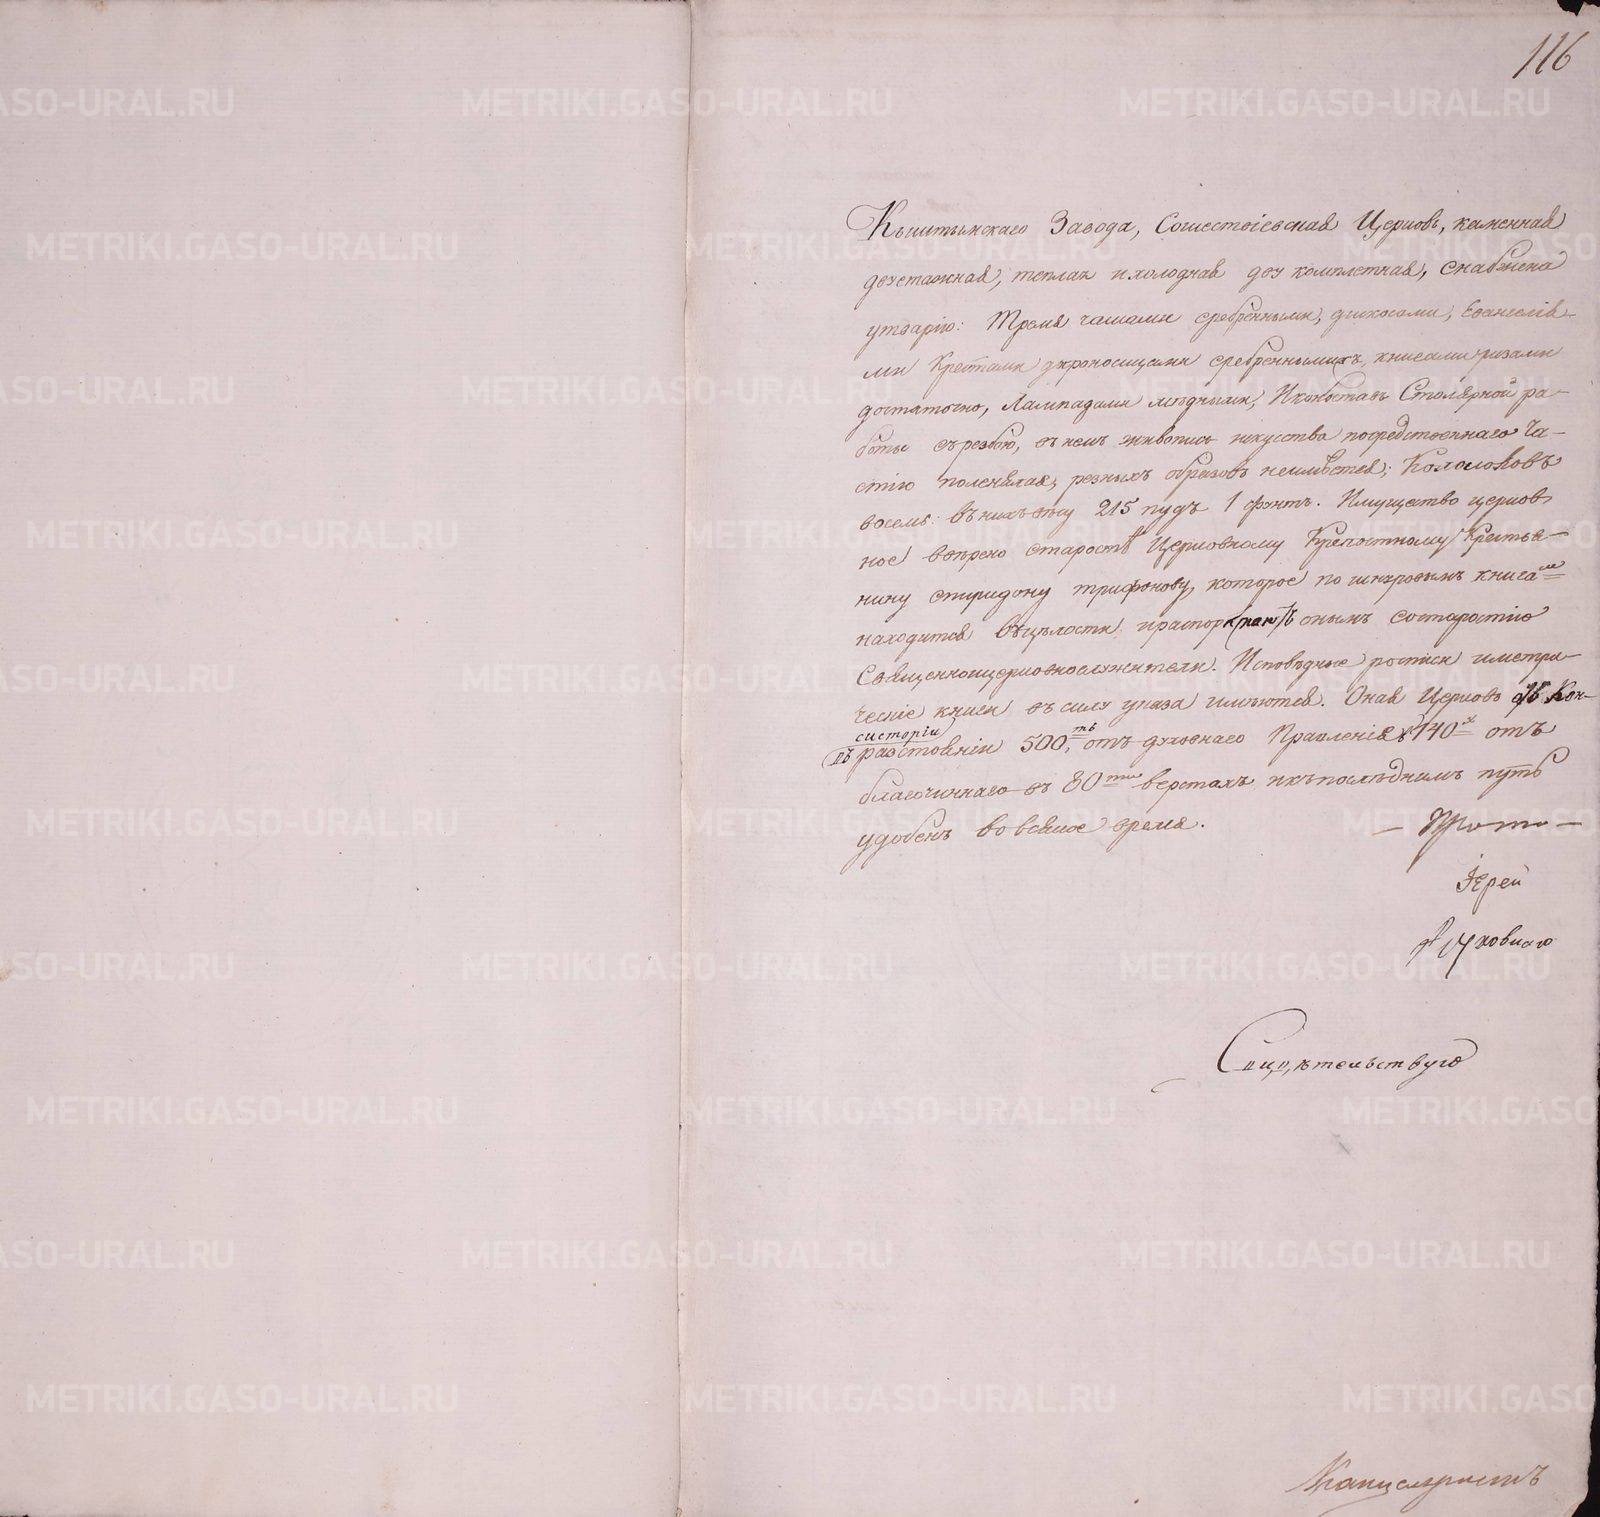 116
Кыштымскаго Завода, Сошествіевская Церковь, каменная
двухэтажная, теплая и холодная двухкомплетная, снабжена
утварію: Тремя чашами сребренными, дискосами, Евангелія-
ми Крестами дароносицами сребренными, книгами ризами
достаточно, Лампадами медными, Иконостасъ Столярной ра-
боты съ резбою, въ немъ живопись искуства посредственнаго ча-
стію полинялая, резныхъ образовъ неимѣется; Колоколовъ
восемь: въ нихъ вѣсу 215 пудъ 1 фунтъ. Имущество церков
ное ввѣрено старостѣ Церковному Крепостному Крестья-
нину спиридону трифонову, которое по шнуровымъ книгамъ
находится въ цѣлости, и распоря онымъ со старостію
Священноицерковнослужители. Исповѣдные росписи и метри-
ческіе книги въ силу указа имѣются. Оная Церковь Кон-
систоріи
въ разстояніи 500, отъ духовнаго Правленія 140 отъ
благочиннаго въ 80ти верстахъ, и къ последнимъ путь
удобенъ во всякое время.
— Прото —
Іерей
Духовнаго
Свидѣтельствую
Канцеляристъ
METRIKI.GASO-URAL.RU